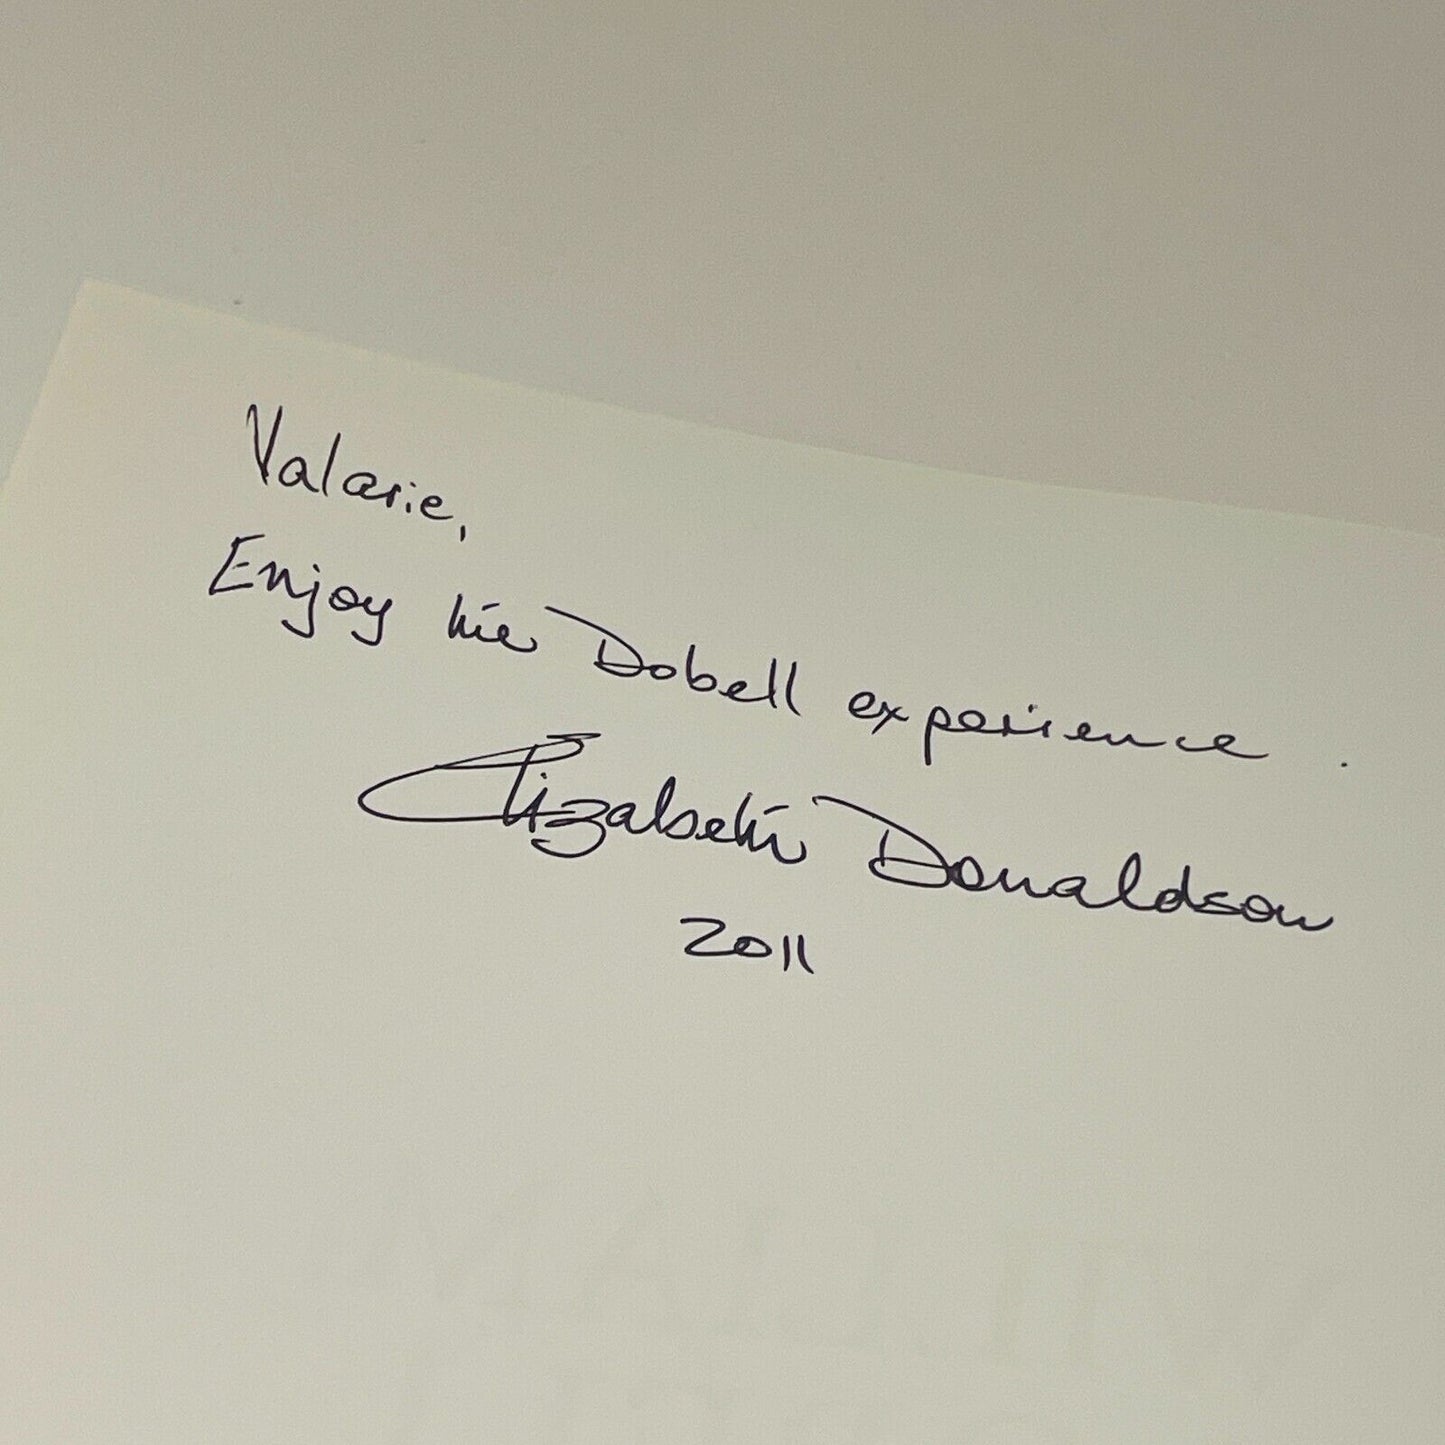 Valarie,
Enjoy the Dobell experience.
Elizabeth Donaldson
2011